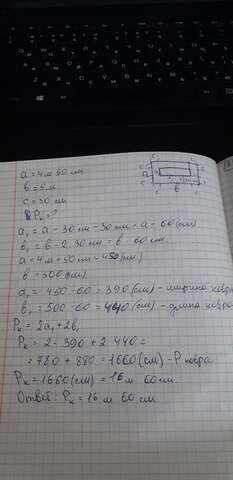 a = 4 м 50 см
в = 5 м
c = 30 см
Pк = ?
a₁ = a - 30 см - 30 см = a - 60 (см)
в₁ = в - 2·30 см = в - 60 см.
a = 4 м + 50 см = 450 (см)
в = 500 (см)
a₁ = 450 - 60 = 390 (см) - ширина ковра
в₁ = 500 - 60 = 440 (см) - длина ковра
Pк = 2a₁ + 2в₁
Pк = 2·390 + 2·440 =
= 780 + 880 = 1660 (см) - P ковра
Pк = 1660 (см) = 16 м 60 см
Ответ: Pк = 16 м 60 см